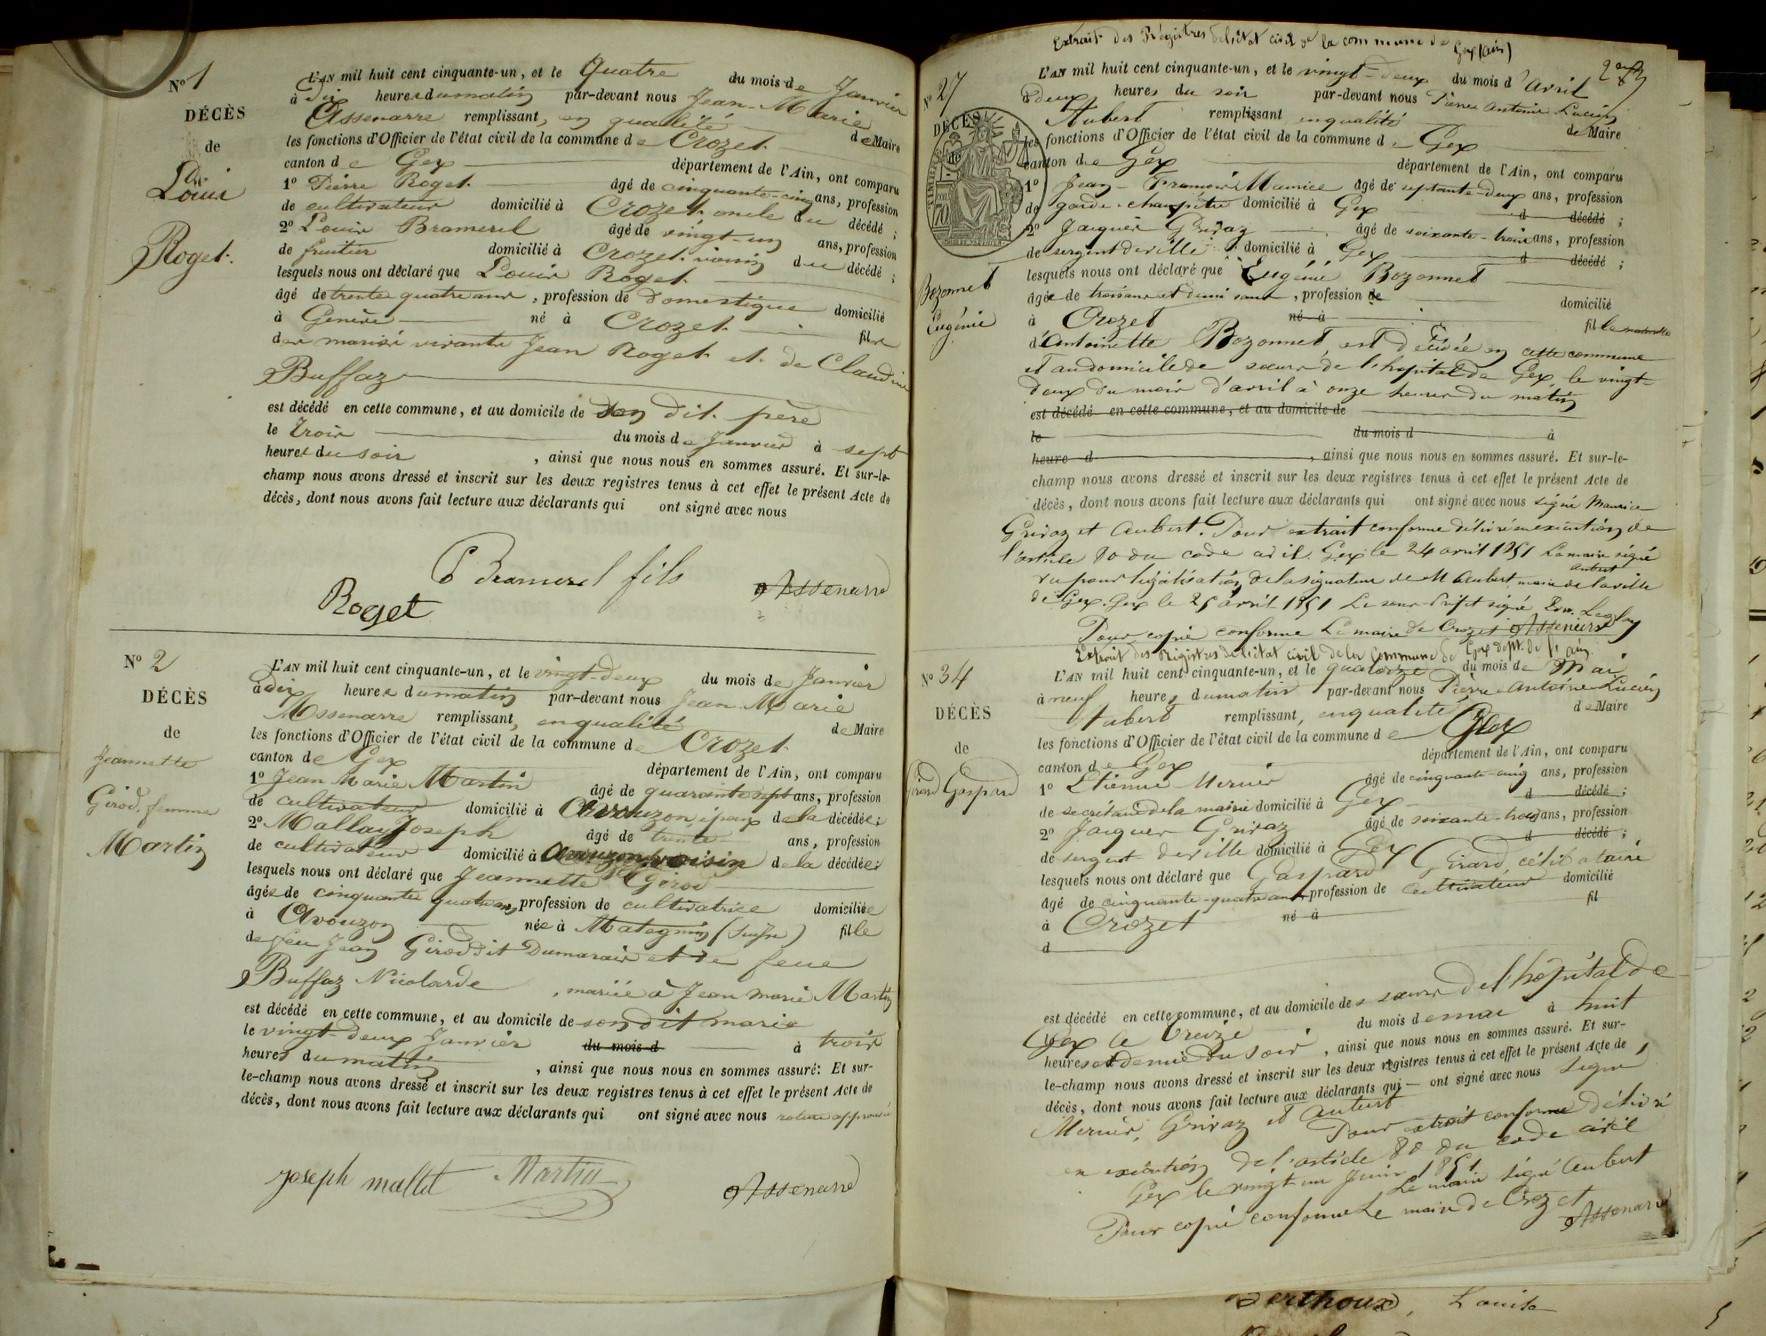 N° 1
DÉCÈS
de
Louis
Roget.
L'AN mil huit cent cinquante-un, et le Quatre du mois de Janvier
à dix heures du matin par-devant nous Jean-Marie
Assenarre remplissant, en qualité de Maire
les fonctions d'Officier de l'état civil de la commune de Crozet
canton de Gex département de l'Ain, ont comparu
1° Pierre Roget. âgé de cinquante-cinq ans, profession
de cultivateur domicilié à Crozet oncle du décédé ;
2° Louis Bramerel âgé de vingt-un ans, profession
de fruitier domicilié à Crozet voisin du décédé ;
lesquels nous ont déclaré que Louis Roget
âgé de trente quatre ans, profession de Domestique domicilié
à Genève né à Crozet fils
des mariés vivants Jean Roget et de Claudine
Buffaz
est décédé en cette commune, et au domicile de son dit père
le trois du mois de Janvier à sept
heures du soir, ainsi que nous nous en sommes assuré. Et sur-le-
champ nous avons dressé et inscrit sur les deux registres tenus à cet effet le présent Acte de
décès, dont nous avons fait lecture aux déclarants qui ont signé avec nous
Bramerel fils
Roget Assenarre
N° 2
DÉCÈS
de
Jeannette
Girod, femme
Martin
L'AN mil huit cent cinquante-un, et le vingt-deux du mois de Janvier
à dix heures du matin par-devant nous Jean Marie
Assenarre remplissant, en qualité de Maire
les fonctions d'Officier de l'état civil de la commune de Crozet
canton de Gex département de l'Ain, ont comparu
1° Jean Marie Martin âgé de quarante sept ans, profession
de cultivateur domicilié à Avouzon époux de la décédée ;
2° Mallay Joseph âgé de trente ans, profession
de cultivateur domicilié à Avouzon voisin de la décédée ;
lesquels nous ont déclaré que Jeannette Girod
âgée de cinquante quatre ans, profession de cultivatrice domiciliée
à Avouzon née à Mategnin (Suisse) fille
de feu Jean Girod dit Dumarais et de feue
Buffaz Nicolarde, mariée à Jean Marie Martin
est décédé en cette commune, et au domicile de son dit marie
le vingt-deux Janvier du mois d à trois
heures du matin, ainsi que nous nous en sommes assuré: Et sur-
le-champ nous avons dressé et inscrit sur les deux registres tenus à cet effet le présent Acte de
décès, dont nous avons fait lecture aux déclarants qui ont signé avec nous rature approuvée
Joseph mallet Martin Assenarre
Extrait des Régistres de l'état civil de la commune de Gex (Ain)
N° 27
DÉCÈS
de
Bozonnet
Eugénie
L'AN mil huit cent cinquante-un, et le vingt-deux du mois d'Avril
à deux heures du soir par-devant nous Pierre Antoine Lucien
Aubert remplissant en qualité de Maire
les fonctions d'Officier de l'état civil de la commune de Gex
canton de Gex département de l'Ain, ont comparu
1° Jean-François Maurice âgé de septante-deux ans, profession
de garde-champêtre domicilié à Gex d décédé ;
2° Jacques Grivaz âgé de soixante-trois ans, profession
de sergent de ville domicilié à Gex d décédé ;
lesquels nous ont déclaré que Eugénie Bozonnet
âgée de trois ans et demi, profession de domicilié
à Crozet né à fille naturelle
d'Antoinette Bozonnet est décédée en cette commune
et au domicile de sœurs de l'hopital de Gex, le vingt
deux du mois d'avril à onze heures du matin
est décédé en cette commune, et au domicile de
le du mois d à
heure d, ainsi que nous nous en sommes assuré. Et sur-le-
champ nous avons dressé et inscrit sur les deux registres tenus à cet effet le présent Acte de
décès, dont nous avons fait lecture aux déclarants qui ont signé avec nous signé Maurice
Grivaz et Aubert. Pour extrait conforme délivré en exécution de
l'article 80 du code civil. Gex le 24 avril 1851 Le maire signé
Aubert
Vu pour légalisation de la signature de M Aubert maire de la ville
de Gex. Gex le 25 avril 1851 Le sous-Préfet signé
Pour copie conforme Le maire de Crozet Assenarre
Extrait des Régistres de l'état civil de la commune de Gex dépt. de l'Ain
N° 34
DÉCÈS
de
Girard Gaspard
L'AN mil huit cent cinquante-un, et le quatorze du mois de Mai
à neuf heures du matin par-devant nous Pierre-Antoine-Lucien
Aubert remplissant, en qualité de Maire
les fonctions d'Officier de l'état civil de la commune de Gex
canton de Gex département de l'Ain, ont comparu
1° Etienne Mernier âgé de cinquante-cinq ans, profession
de secrétaire de la mairie domicilié à Gex d décédé ;
2° Jacques Grivaz âgé de soixante-trois ans, profession
de sergent de ville domicilié à Gex d décédé ;
lesquels nous ont déclaré que Gaspard Girard, célibataire
âgé de cinquante-quatre ans, profession de cultivateur domicilié
à Crozet né à fil
d
est décédé en cette commune, et au domicile des sœurs de l'hôpital de
Gex le treize du mois de mai à huit
heures et demie du soir, ainsi que nous nous en sommes assuré. Et sur-
le-champ nous avons dressé et inscrit sur les deux registres tenus à cet effet le présent Acte de
décès, dont nous avons fait lecture aux déclarants qui ont signé avec nous signé
Mernier, Grivaz et Aubert
Pour extrait conforme délivré
en exécution de l'article 80 du code civil
Gex le vingt-un Juin 1851
Le maire signé Aubert
Pour copie conforme Le maire de Crozet
Assenarre
Berthoux, Louise